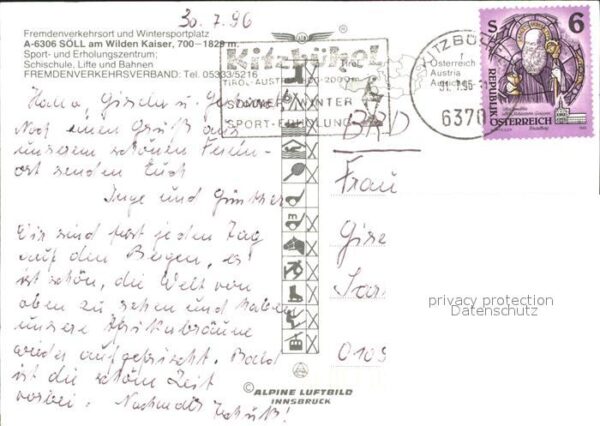 30.7.96
Fremdenverkehrsort und Wintersportplatz
A-6306 SÖLL am Wilden Kaiser, 700–1829 m
Sport- und Erholungszentrum;
Schischule, Lifte und Bahnen
FREMDENVERKEHRSVERBAND: Tel. 05333/5216
Kitzbühel
TIROL-AUSTRIA
2000 m
SOMMER/WINTER
SPORT-ERHOLUNG
Tirol
KITZBÜHEL
Österreich
Austria
6370
S 6
REPUBLIK
ÖSTERREICH
Hallo, Gisela u.
Noch einen Gruß aus
unserem schönen Ferien-
ort senden Euch
Inge und Günther
Wir sind fast jeden Tag
auf den Bergen, es
ist schön, die Welt von
oben zu sehen und haben
unsere Afrikabräune
wieder aufgefrischt. Bald
ist die schöne Zeit
vorbei. Nochmals
BRD
Frau
Gise
0109
privacy protection
Datenschutz
© ALPINE LUFTBILD
INNSBRUCK